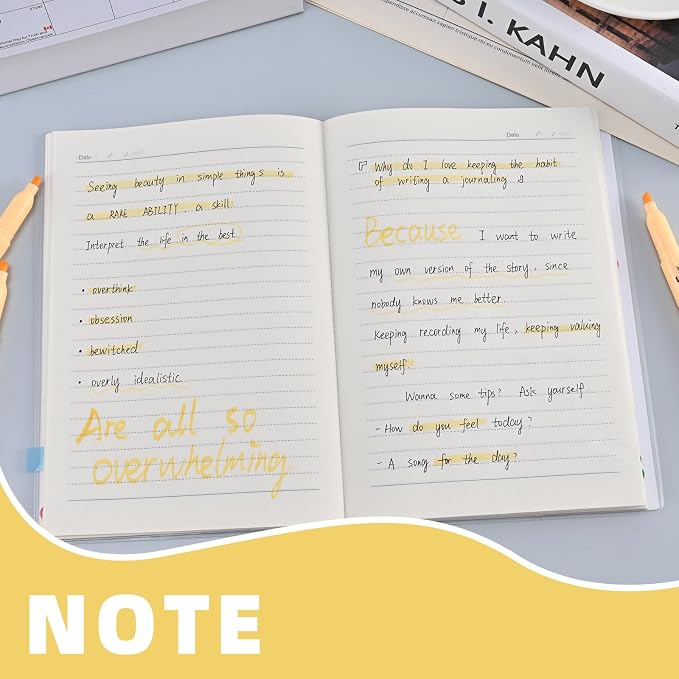 T. KAHN
Date / /
Seeing beauty in simple things is
a RARE ABILITY, a skill.
Interpret the life in the best.
• overthink
• obsession
• bewitched
• overly idealistic
Are all so
overwhelming
Date / /
Why do I love keeping the habit
of writing a journaling
Because I want to write
my own version of the story, since
nobody knows me better.
Keeping recording my life, keeping valuing
myself.
Wanna some tips? Ask yourself
- How do you feel today?
- A song for the day?
NOTE